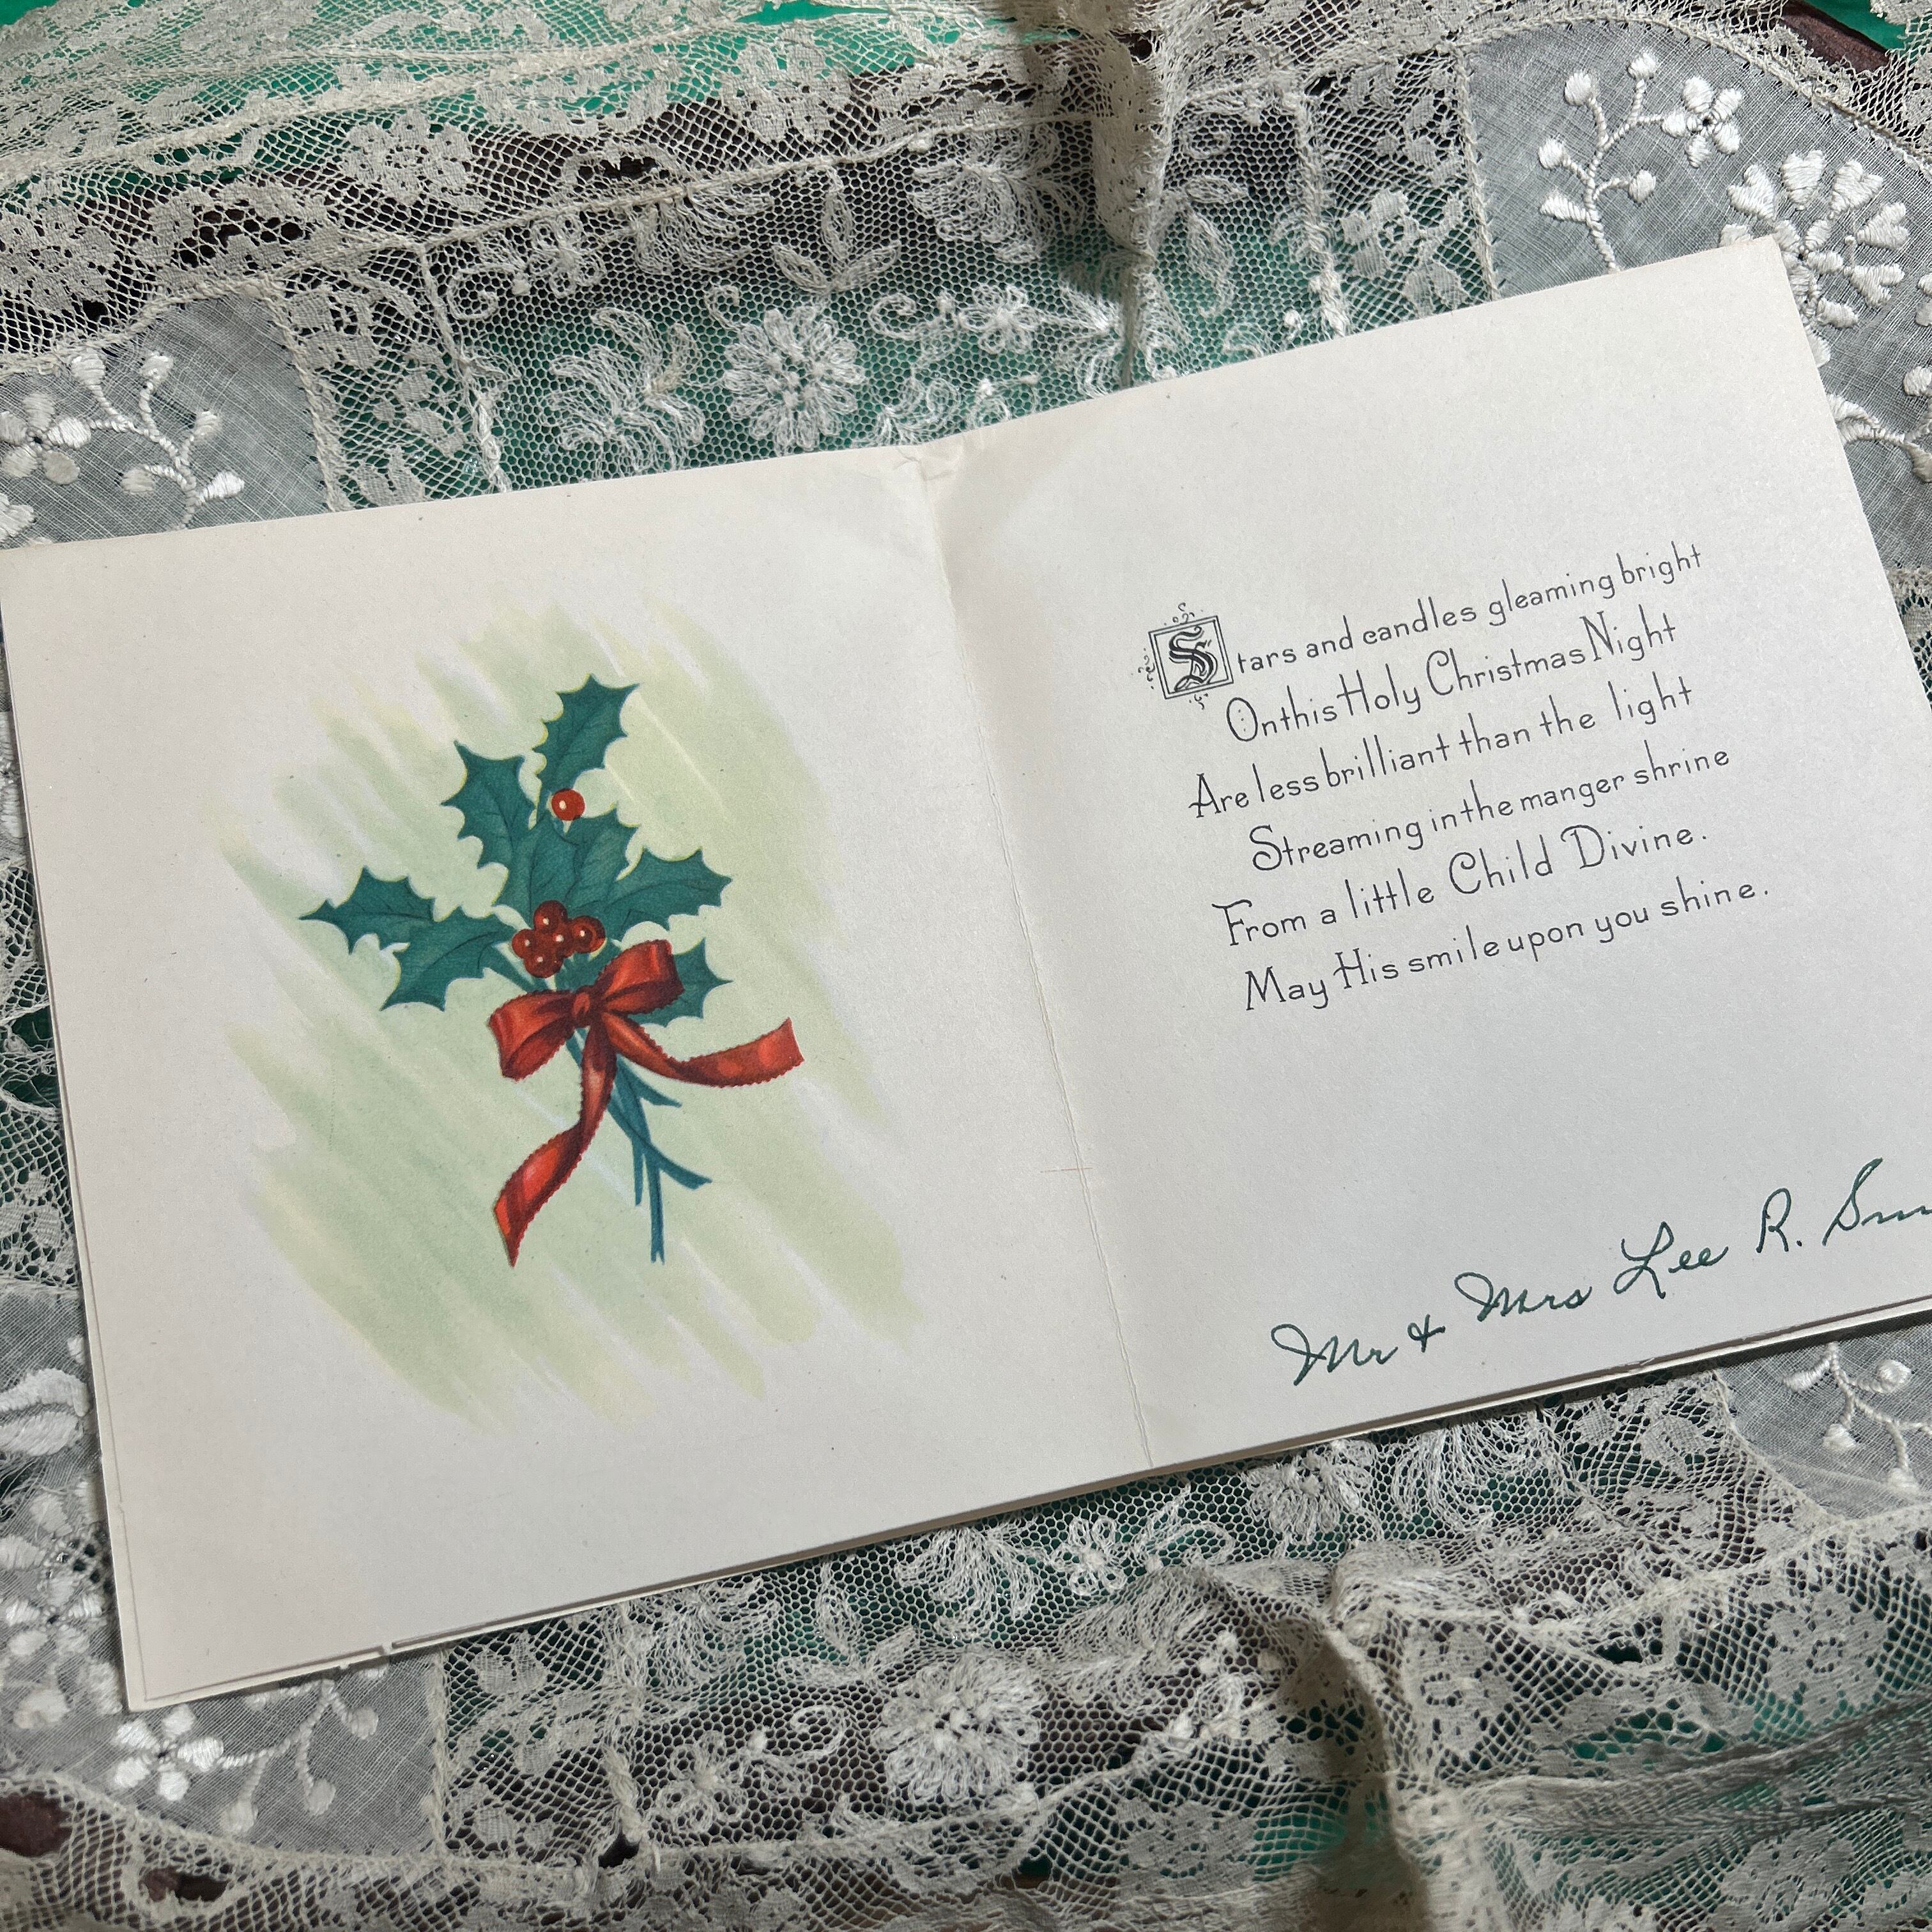 Stars and candles gleaming bright
On this Holy Christmas Night
Are less brilliant than the light
Streaming in the manger shrine
From a little Child Divine.
May His smile upon you shine.
Mr & Mrs Lee R.